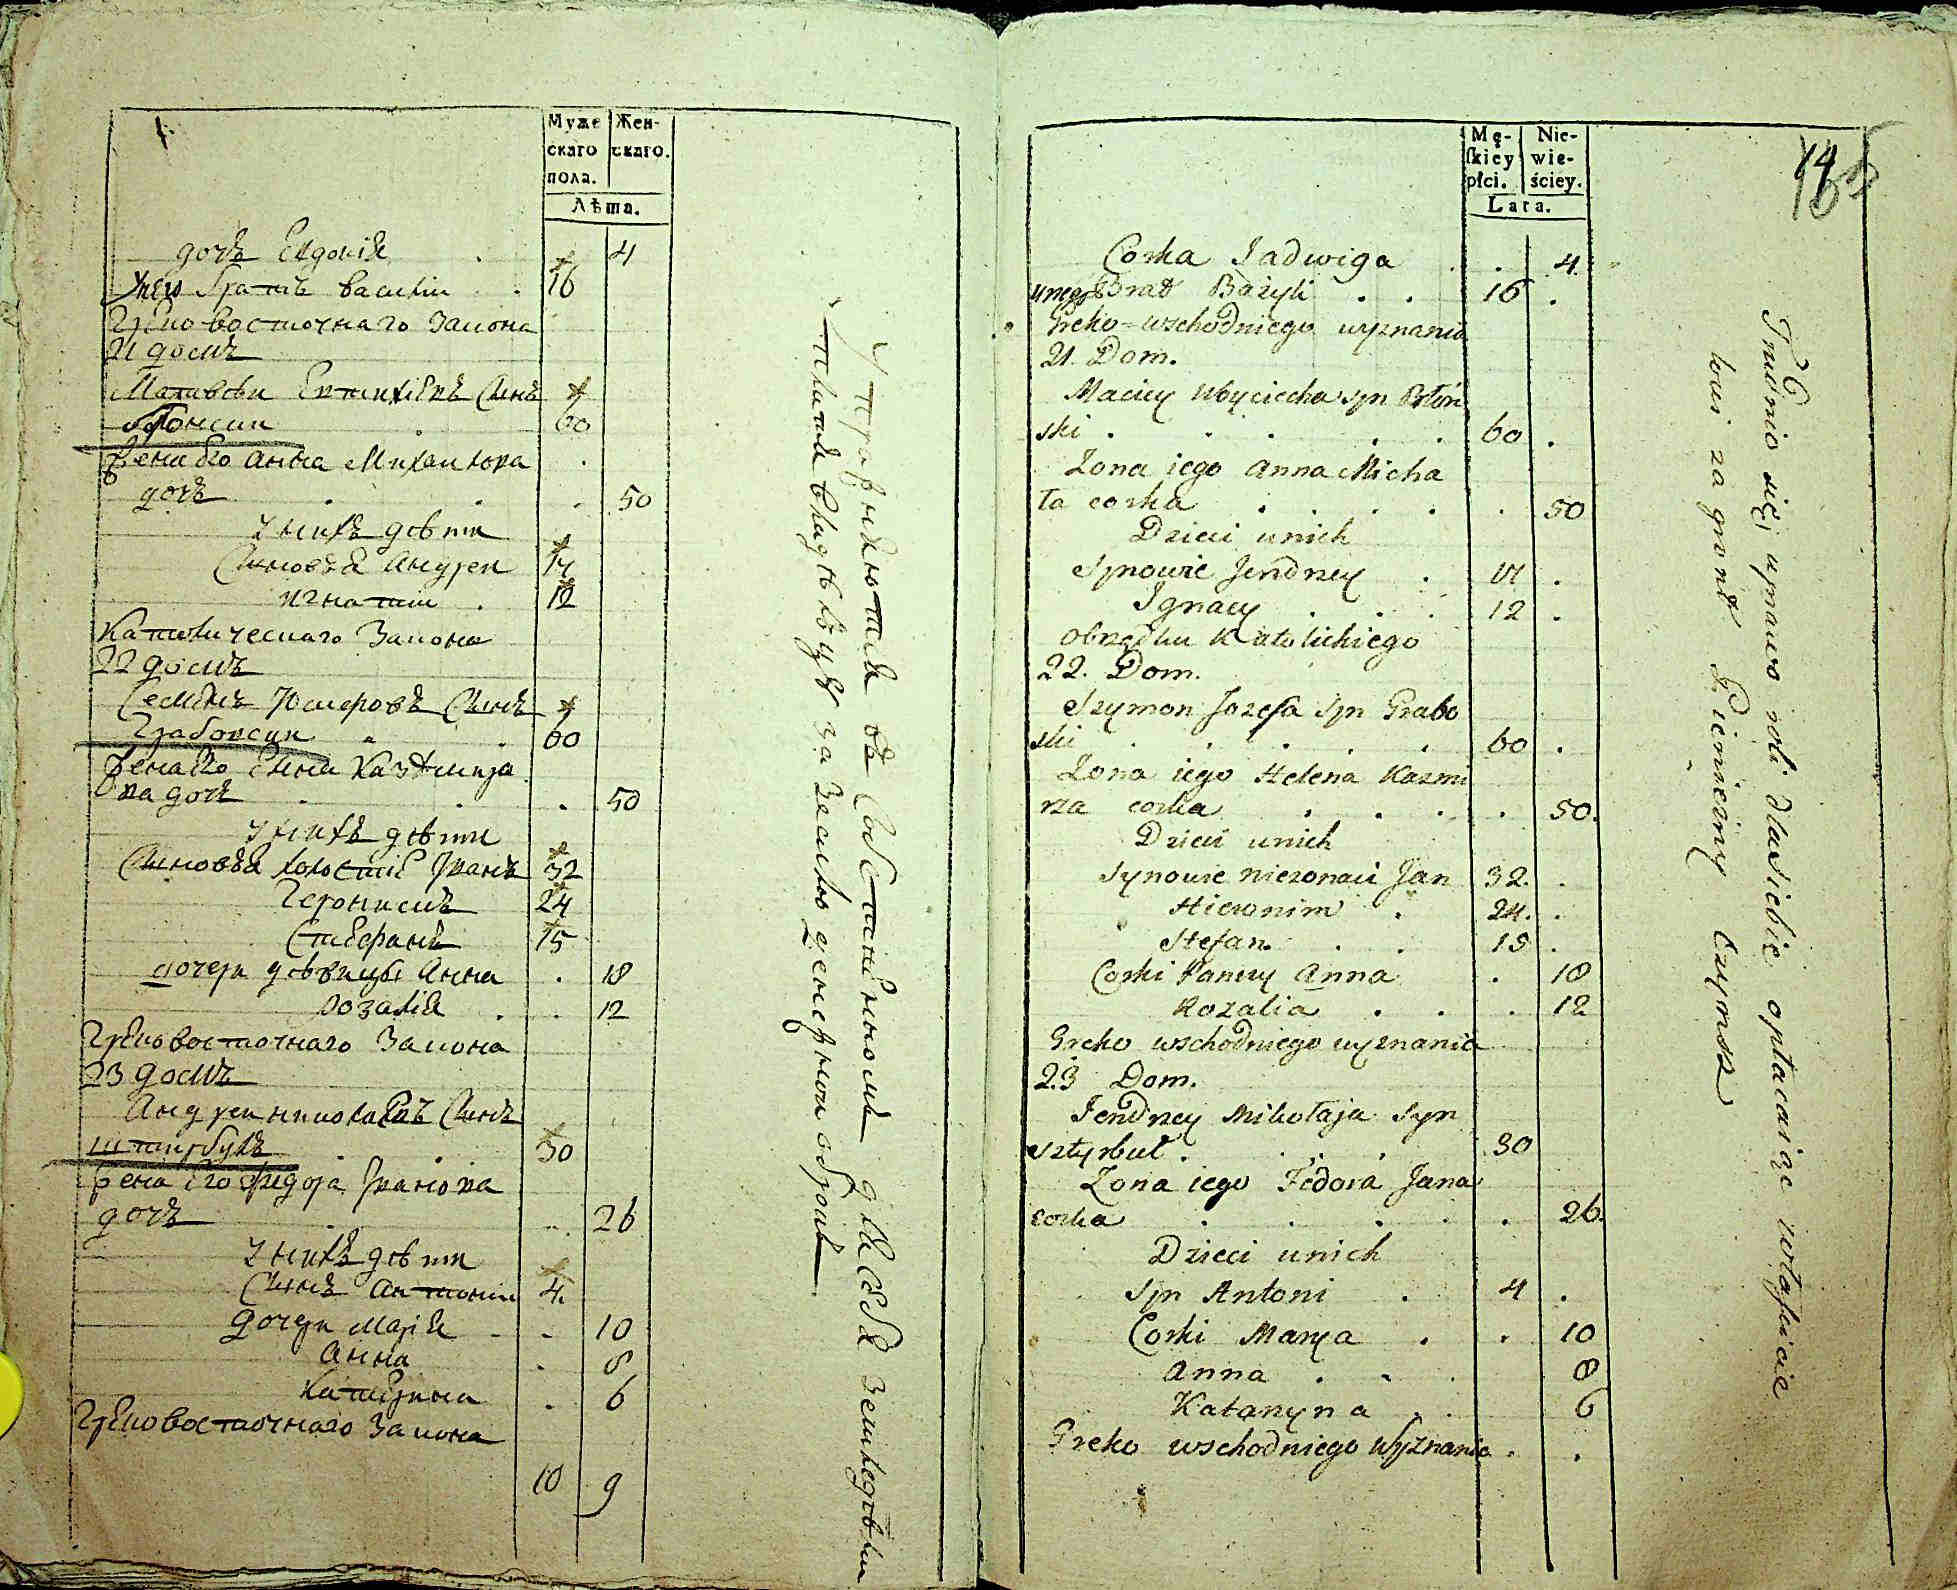 Муже
скаго
пола.
Жен-
скаго.
Лѣта.
дочь Евдокія . 4
у него братъ Василій . 16
Греко восточнаго Закона
21 домъ
Матвѣй сынъ
60
Жена его Анна Михайлова
дочь . . . 50
У нихъ дѣти
Сыновья Андрей 14
Игнатій . 12
Католическаго Закона
22 домъ
Семенъ Юзефовъ Сынъ
Грабовскій 60
Жена его Елена Казимира
ва дочь . . . 50
У нихъ дѣти
Сыновья холостіе Иванъ 32
Геронимъ 24
Стефанъ 15
дочери дѣвицы Анна . 18
Розалія . . 12
Греко восточнаго Закона
23 домъ
Андрей Николаевъ Сынъ
Штырбулъ . . 30
Жена его Федора Иванова
дочь . .. 26
У нихъ дѣти
Сынъ Антоній 4.
Дочери Марія - - 10
Анна . 8
Катерина . 6
Греко восточнаго Закона
10 9
Упражняются въ собственномъ для себя земледѣліи
платя владѣльцу за землю денежной оброкъ
Mę-
skiey
płci.
Nie-
wie-
ściey.
Lata.
14
Corka Jadwiga . . 4.
u niego Brat Bazyli . . 16 .
Greko-wschodniego wyznania
21. Dom.
Maciey Woyciecha syn Błoń
ski . . . . . 60 .
Zona iego Anna Micha
ła corka . . . . . 50
Dzieci u nich
Synowie Jendrzey . 14 .
Ignacy . . . 12 .
Obrządku Katolickiego
22. Dom.
Szymon Jozefa Syn Grabo
ski . . . . . 60 .
Zona iego Helena Kazmi
rza corka . . . . 50.
Dzieci u nich
Synowie niezonaci Jan 32. .
Hieronim . 24. .
Stefan . . 15 .
Corki Panny Anna . 18
Rozalia . . . 12
Greko wschodniego wyznania
23 Dom.
Jendrzey Mikołaja Syn
Sztyrbuł . . . . 30
Zona iego Fedora Jana
corka . . . . . 26.
Dzieci u nich
Syn Antoni . 4 .
Corki Marya . . 10
Anna . . 8
Katarzyna . . 6
Greko wschodniego Wyznania . .
Trudnio się uprawo roli dla siebie opłacaiąc właścicie
lowi za grunt Pieniężny Czynsz